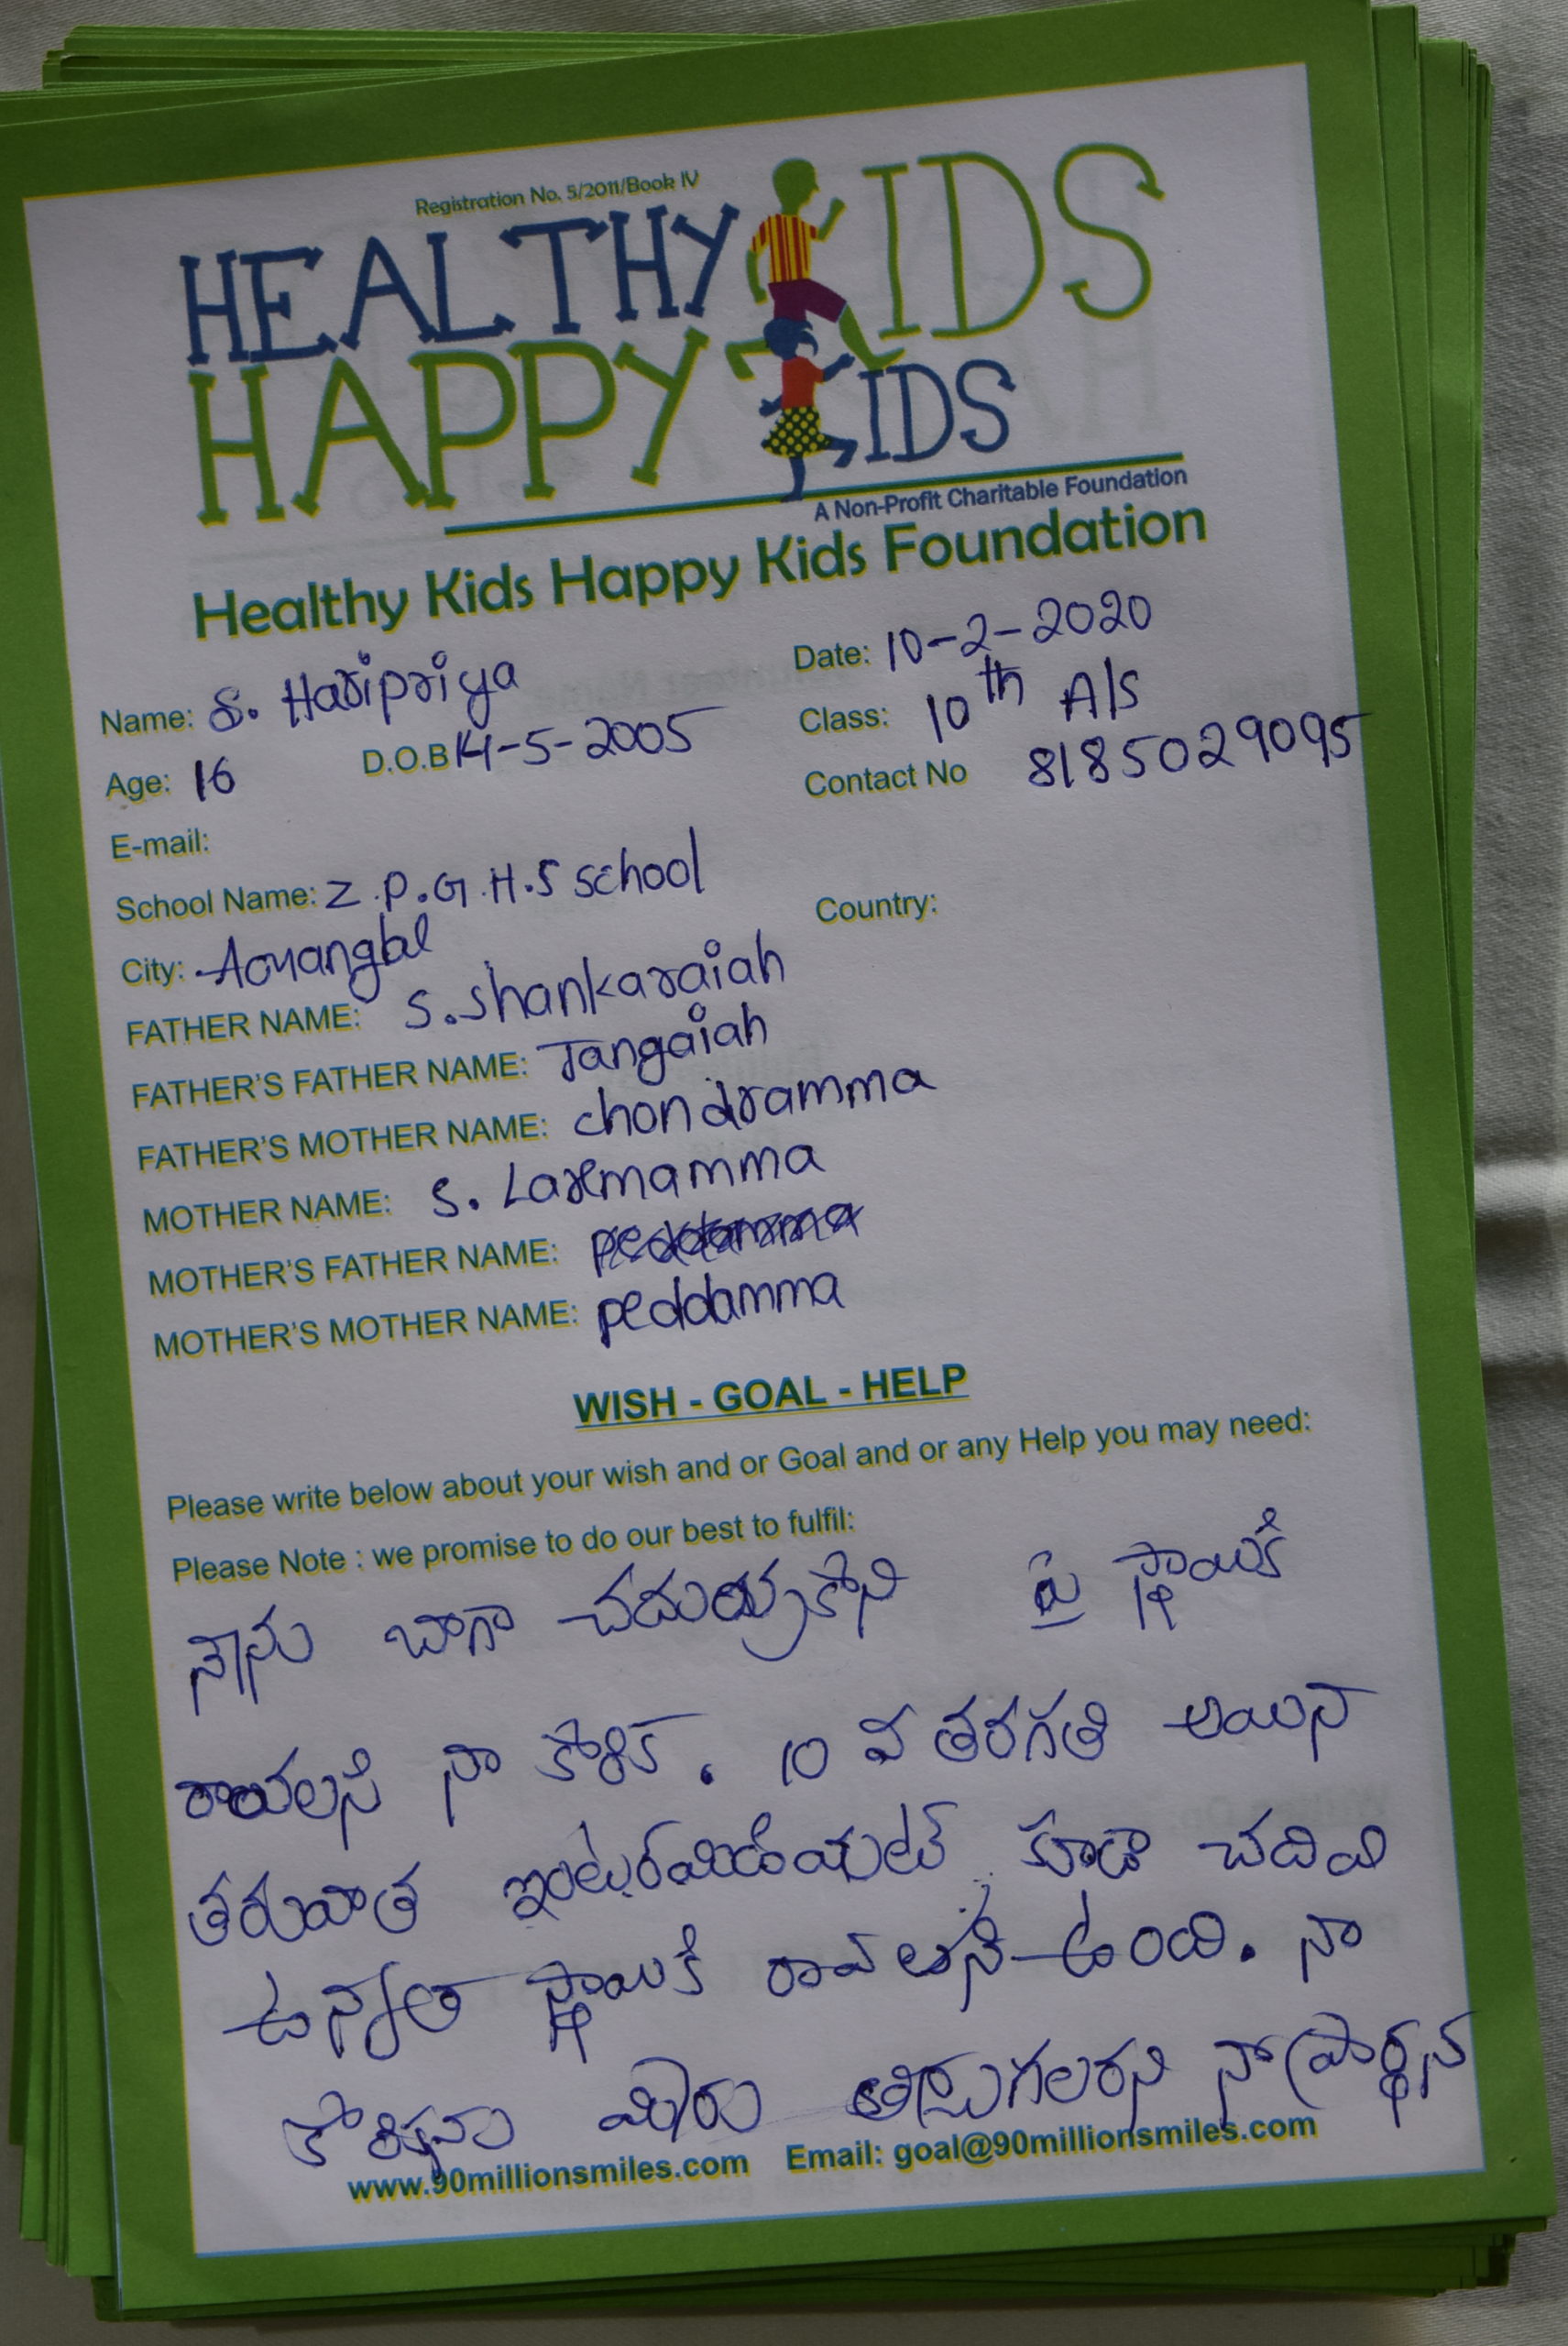 Registration No. 5/2011/Book IV
HEALTHY KIDS
HAPPY KIDS
A Non-Profit Charitable Foundation
Healthy Kids Happy Kids Foundation
Name: S. Haripriya Date: 10-2-2020
Age: 16 D.O.B 14-5-2005 Class: 10th A/S
Contact No 8185029095
E-mail:
School Name: Z.P.G.H.S School
City: Country:
FATHER NAME: S. Shankaraiah
FATHER'S FATHER NAME: Jangaiah
FATHER'S MOTHER NAME: chondramma
MOTHER NAME: S. Laxmamma
MOTHER'S FATHER NAME:
MOTHER'S MOTHER NAME: peddamma
WISH - GOAL - HELP
Please write below about your wish and or Goal and or any Help you may need:
Please Note : we promise to do our best to fulfil:
నాను బాగా పై స్థాయికి
నా కోరిక. 10 వ తరగతి అయిన
తరువాత కూడా చదివి
ఉన్నత స్థాయికి ఉంది. నా
మీరు నా ప్రార్థన
www.90millionsmiles.com Email: goal@90millionsmiles.com